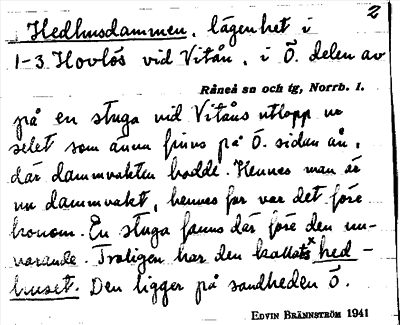 2
Hedhusdammen, lägenhet i
1-3 Hovlös vid Vitån, i Ö. delen av
Råneå sn och tg, Norrb. l.
på en stuga vid Vitåns utlopp ur
selet som ännu finns på Ö. sidan ån,
där dammvakten bodde. Hennes man är
nu dammvakt, hennes far var det före
honom. En stuga fanns där före den nu-
varande. Troligen har den kallats hed-
huset. Den ligger på sandheden Ö.
EDVIN BRÄNNSTRÖM 1941